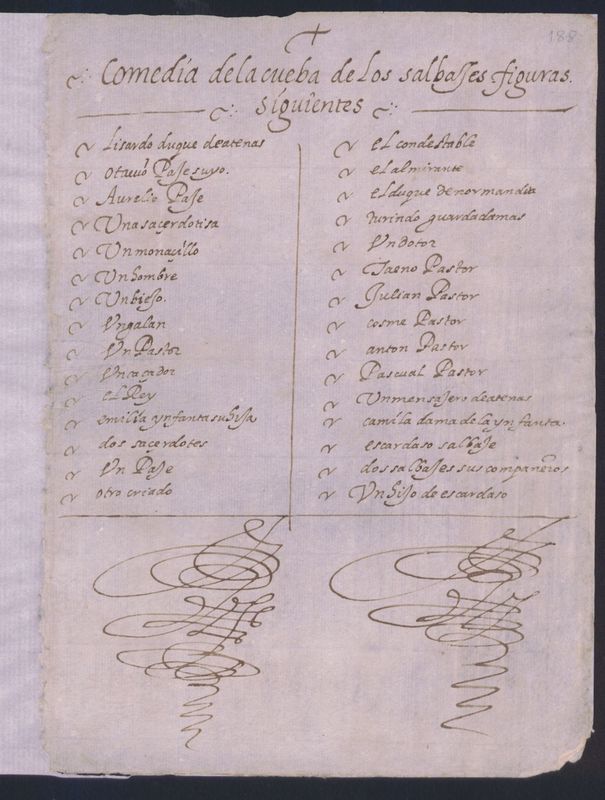 188
Comedia dela cueba de los salbajes figuras.
siguientes
Lisardo duque de atenas
otauio Paje suyo.
Aurelio Paje
Una saçerdotisa
Un monaçillo
Un hombre
Un biejo.
Un galan
Un Pastor
Un caçador
el Rey
emilia ynfanta su hija
dos saçerdotes
Un Paje
otro criado
el condestable
el almirante
el duque de normandia
turindo guardadamas
Un dotor
Pastor
Julian Pastor
cosme Pastor
anton Pastor
Pascual Pastor
Un mensajero de atenas
camila dama de la ynfanta.
escardaso salbaje
dos salbajes sus compañeros
Un hijo de escardaso